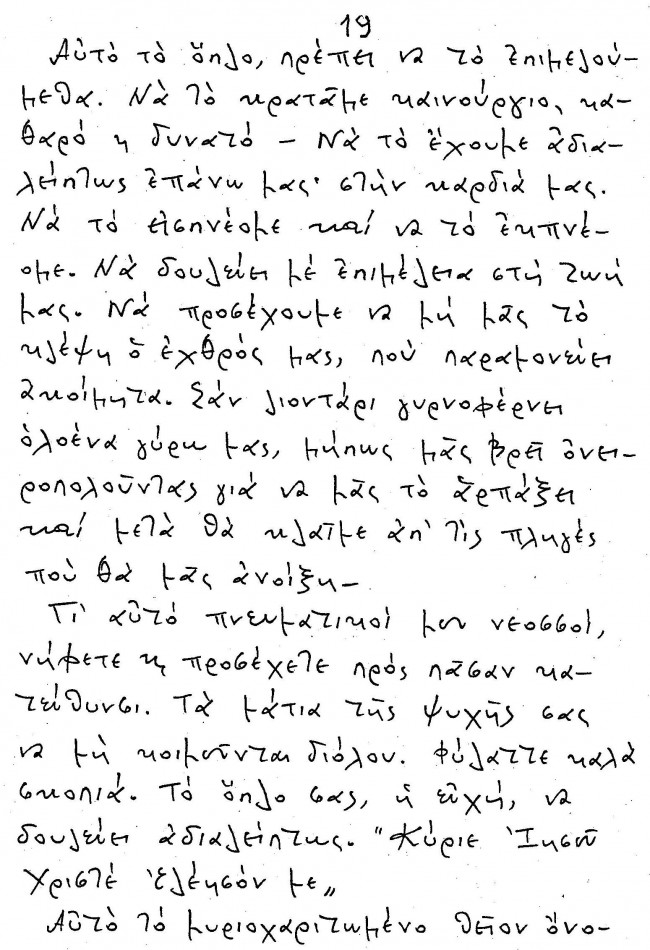 19
Αὐτὸ τὸ ὅπλο, πρέπει νὰ τὸ ἐπιμελού-
μεθα. Νὰ τὸ κρατᾶμε καινούργιο, κα-
θαρό κ δυνατό – Νὰ τὸ ἔχουμε ἀδια-
λείπτως ἐπάνω μας· στὴν καρδιά μας.
Νὰ τὸ εἰσπνέομε καί νὰ τὸ ἐκπνέ-
ομε. Νὰ δουλεύει μέ ἐπιμέλεια στή ζωή
μας. Νὰ προσέχουμε νὰ μή μᾶς τὸ
κλέψη ὁ ἐχθρός μας, πού παραμονεύει
ἀκοίμητα. Σάν λιοντάρι γυρνοφέρνει
ὁλοένα γύρω μας, μήπως μᾶς βρεῖ ὀνει-
ροπολοῦντας γιά νὰ μᾶς τὸ ἁρπάξει
καί μετὰ θὰ κλαῖμε ἀπ' τὶς πληγές
ποὺ θὰ μᾶς ἀνοίξη –
Γι' αὐτό πνευματικοί μου νεοσσοί,
νήφετε κ προσέχετε πρός πᾶσαν κα-
τεύθυνσι. Τὰ μάτια τῆς ψυχῆς σας
νὰ μή κοιμοῦνται διόλου. Φύλαττε καλὰ
σκοπιά. Τὸ ὅπλο σας, ἡ εὐχή, νὰ
δουλεύει ἀδιαλείπτως. "Κύριε Ἰησοῦ
Χριστέ ἐλέησόν με„
Αὐτὸ τὸ μυριοχαριτωμένο θεῖον ὄνο-